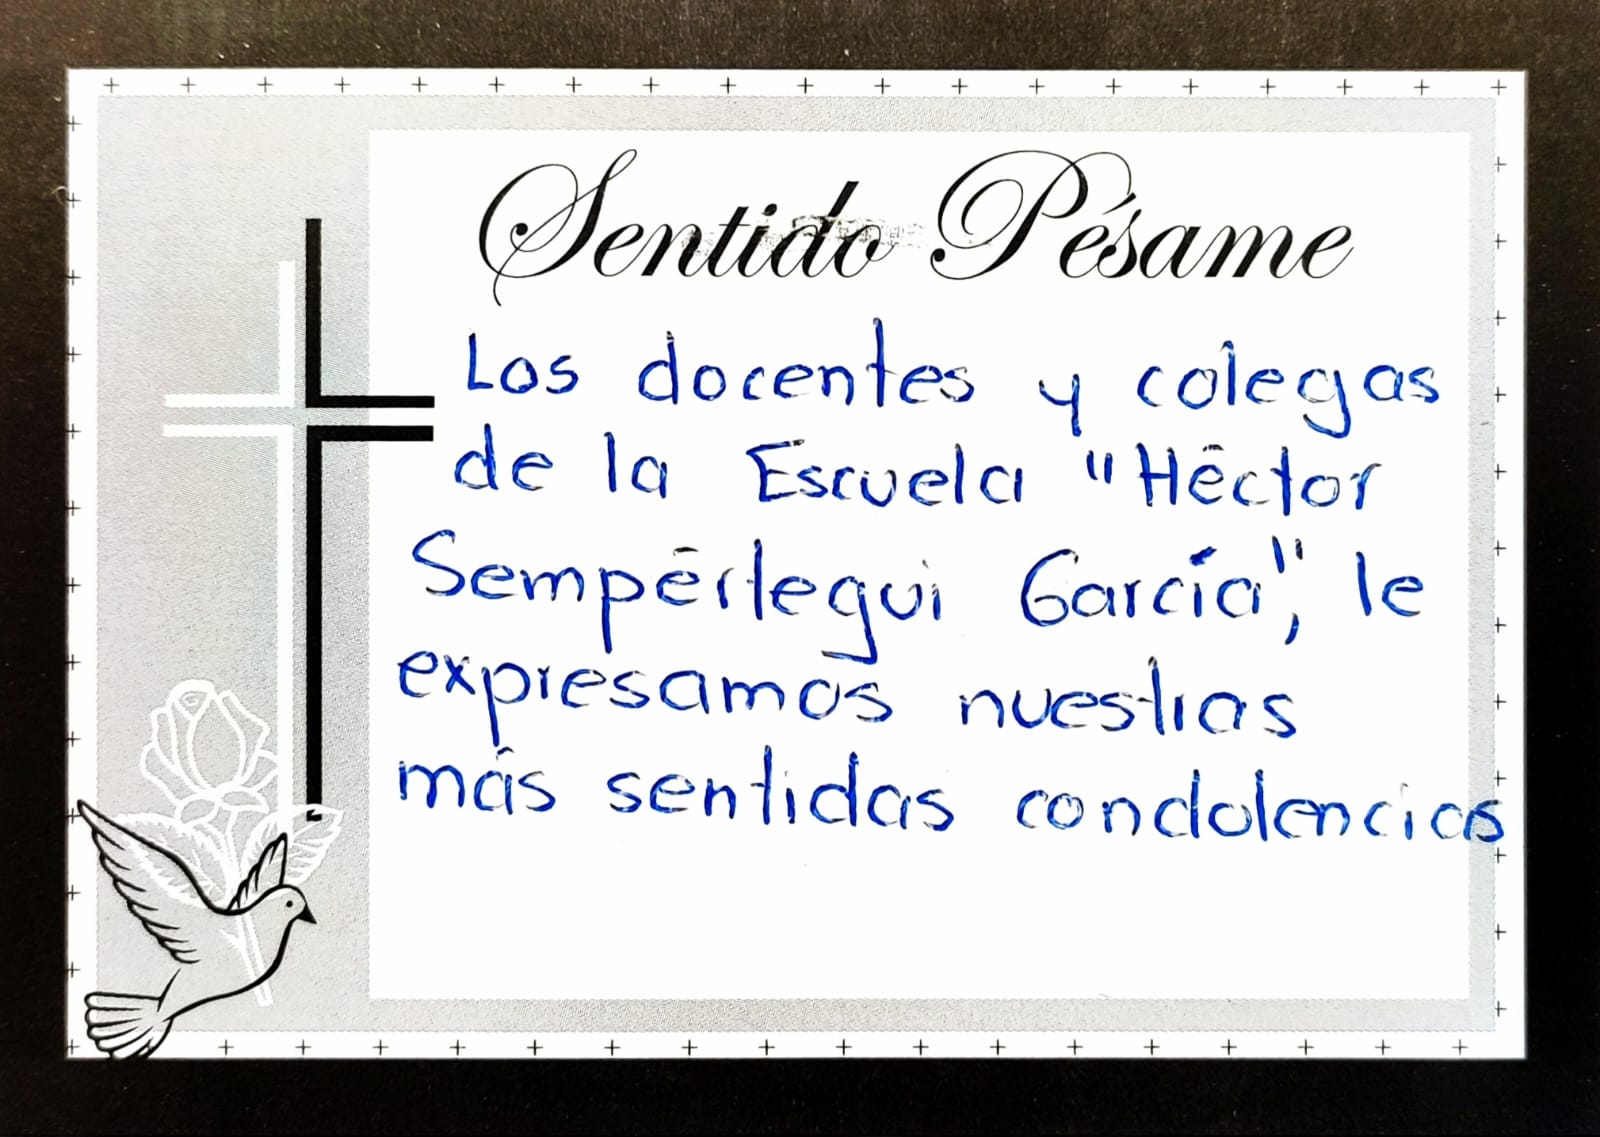 Sentido Pésame
Los docentes y colegas
de la Escuela "Héctor
Sempértegui García", le
expresamos nuestras
más sentidas condolencias